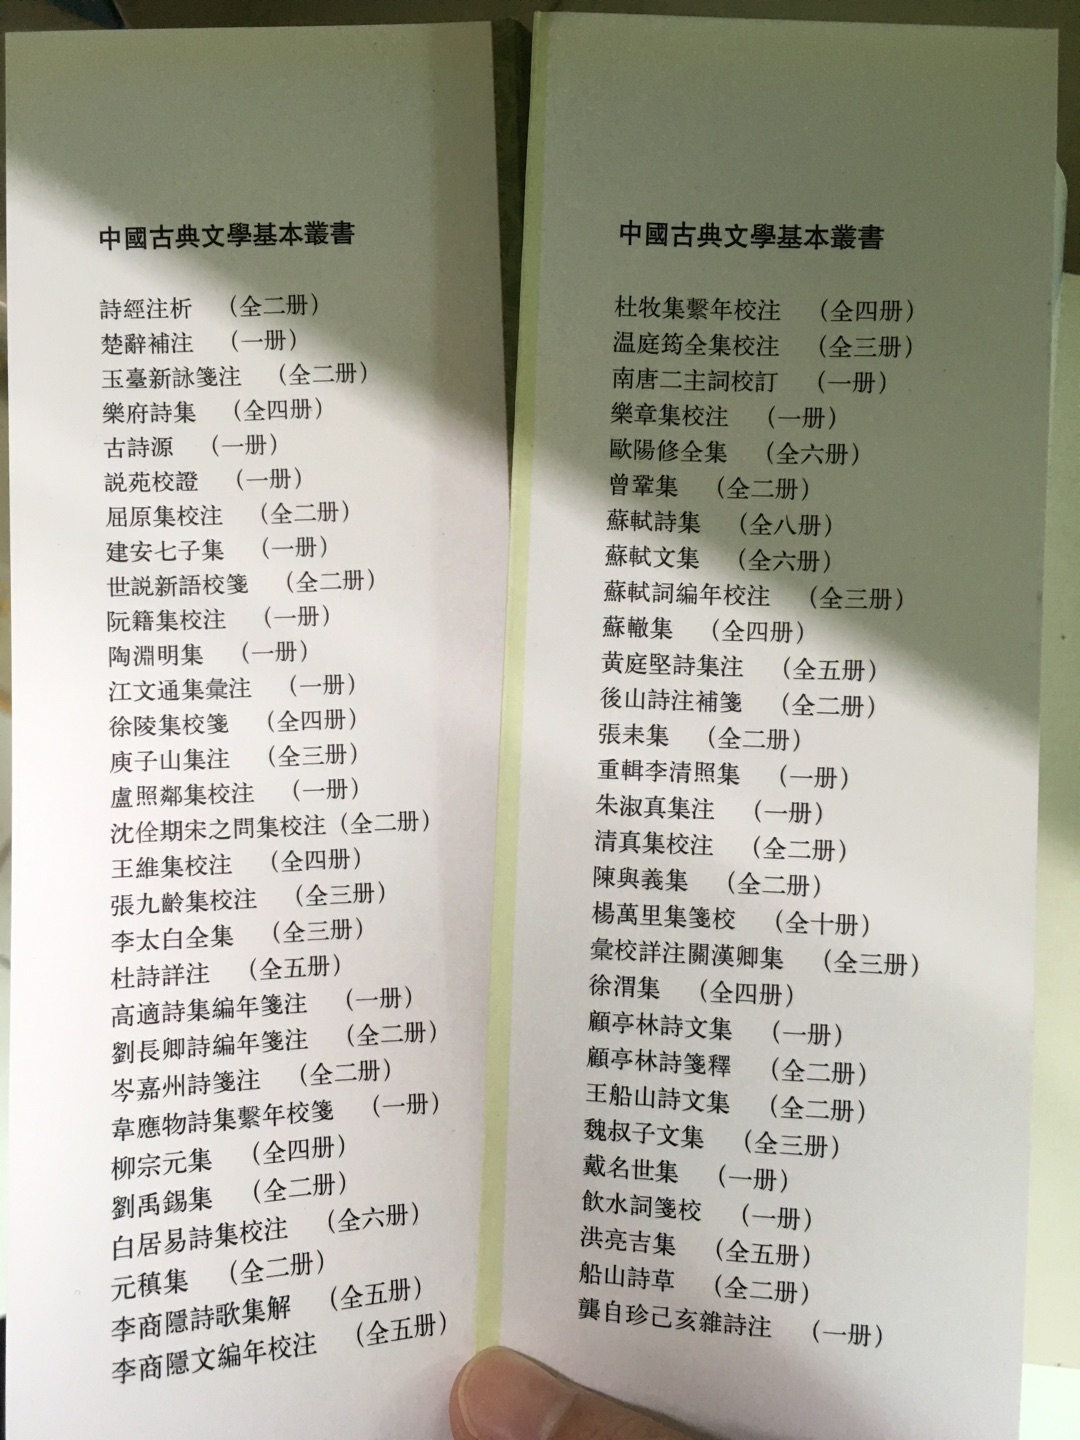 中國古典文學基本叢書
詩經注析 （全二册）
楚辭補注 （一册）
玉臺新詠箋注 （全二册）
樂府詩集 （全四册）
古詩源 （一册）
説苑校證 （一册）
屈原集校注 （全二册）
建安七子集 （一册）
世説新語校箋 （全二册）
阮籍集校注 （一册）
陶淵明集 （一册）
江文通集彙注 （一册）
徐陵集校箋 （全四册）
庾子山集注 （全三册）
盧照鄰集校注 （一册）
沈佺期宋之問集校注（全二册）
王維集校注 （全四册）
張九齡集校注 （全三册）
李太白全集 （全三册）
杜詩詳注 （全五册）
高適詩集編年箋注 （一册）
劉長卿詩編年箋注 （全二册）
岑嘉州詩箋注 （全二册）
韋應物詩集繫年校箋 （一册）
柳宗元集 （全四册）
劉禹錫集 （全二册）
白居易詩集校注 （全六册）
元稹集 （全二册）
李商隱詩歌集解 （全五册）
李商隱文編年校注 （全五册）
中國古典文學基本叢書
杜牧集繫年校注 （全四册）
温庭筠全集校注 （全三册）
南唐二主詞校訂 （一册）
樂章集校注 （一册）
歐陽修全集 （全六册）
曾鞏集 （全二册）
蘇軾詩集 （全八册）
蘇軾文集 （全六册）
蘇軾詞編年校注 （全三册）
蘇轍集 （全四册）
黃庭堅詩集注 （全五册）
後山詩注補箋 （全二册）
張耒集 （全二册）
重輯李清照集 （一册）
朱淑真集注 （一册）
清真集校注 （全二册）
陳與義集 （全二册）
楊萬里集箋校 （全十册）
彙校詳注關漢卿集 （全三册）
徐渭集 （全四册）
顧亭林詩文集 （一册）
顧亭林詩箋釋 （全二册）
王船山詩文集 （全二册）
魏叔子文集 （全三册）
戴名世集 （一册）
飲水詞箋校 （一册）
洪亮吉集 （全五册）
船山詩草 （全二册）
龔自珍己亥雜詩注 （一册）